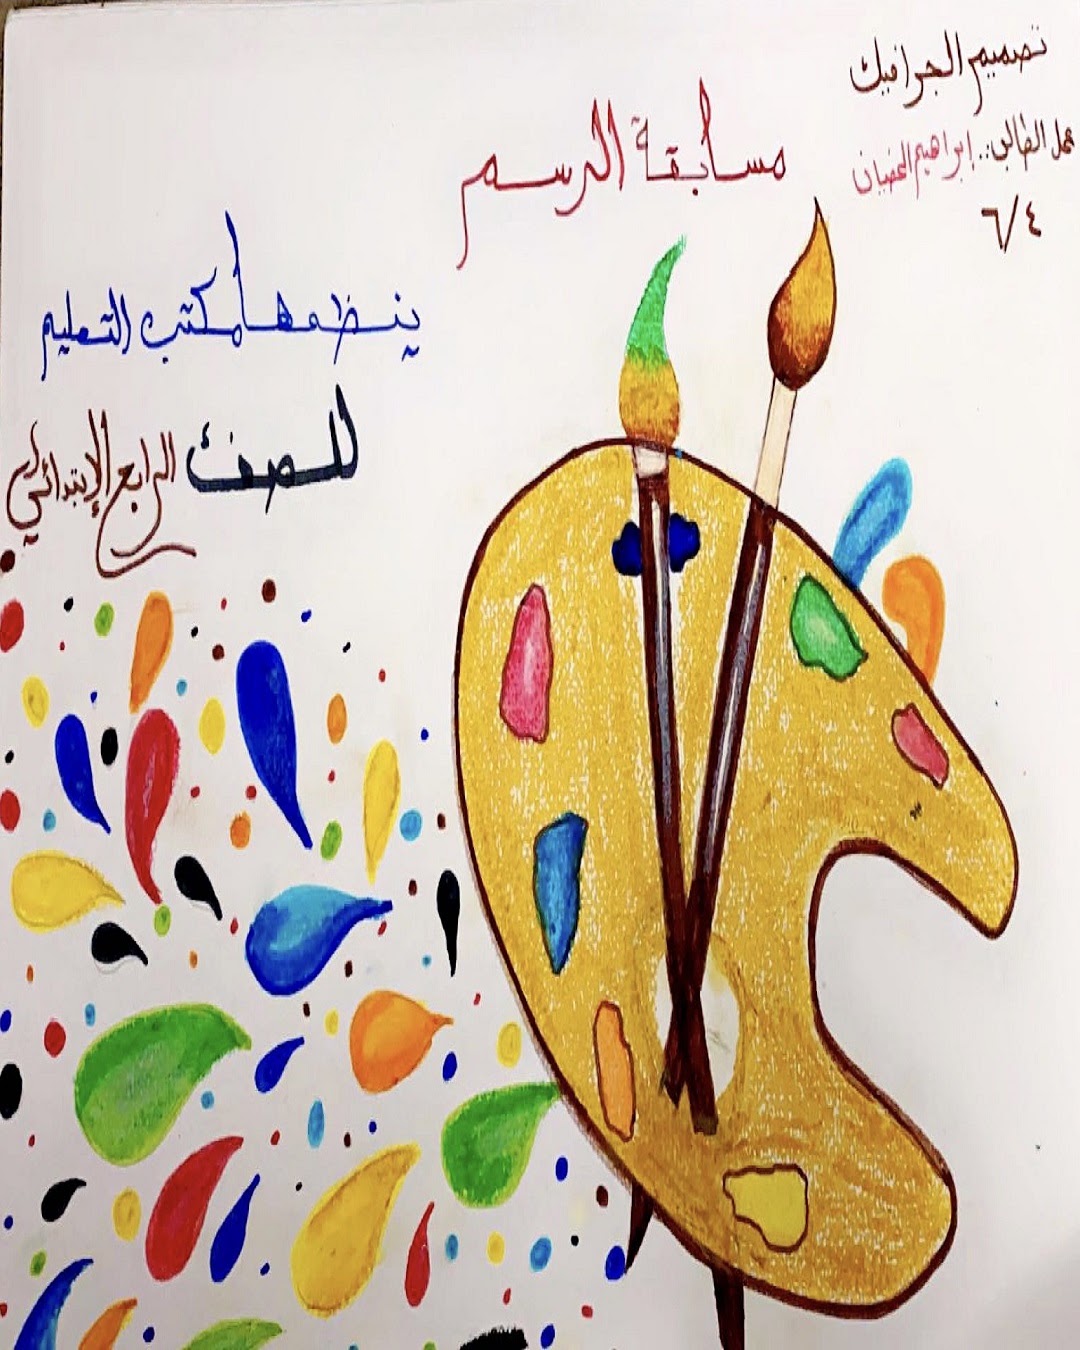 تصميم الجرافيك
عمل الطالب.. إبراهيم الغضيان
٦/٤
مسابقة الرسم
ينظمها مكتب التعليم
للصف الرابع الإبتدائي